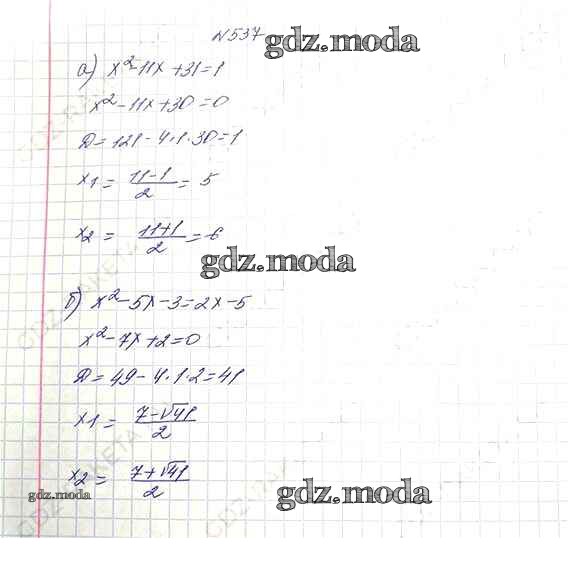 N537
gdz.moda
а) x²-11x+31=1
x²-11x+30=0
D=121-4·1·30=1
x1 = (11-1)/2 = 5
x2 = (11+1)/2 = 6
gdz.moda
б) x²-5x-3=2x-5
x²-7x+2=0
D=49-4·1·2=41
x1 = (7-√41)/2
x2 = (7+√41)/2
gdz.moda
gdz.moda